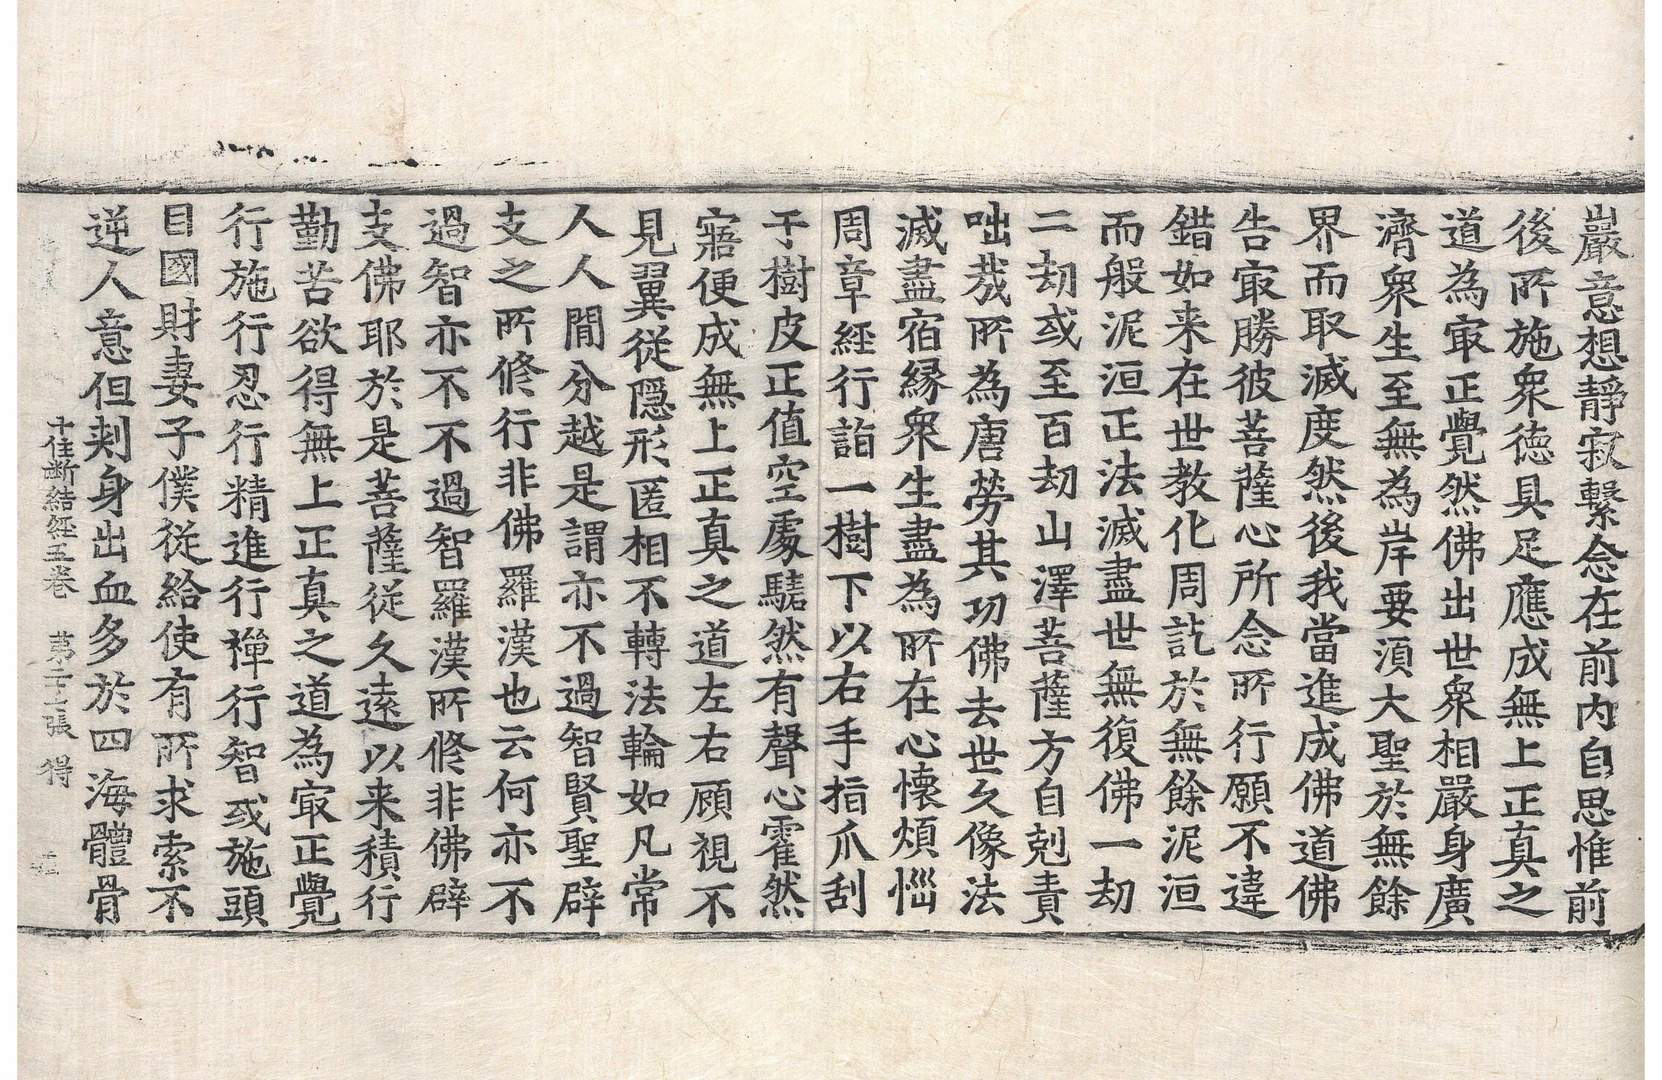 嚴意想靜寂繫念在前內自思惟前
後所施衆德具足應成無上正真之
道為㝡正覺然佛出世衆相嚴身廣
濟衆生至無為岸要湏大聖於無餘
界而取滅度然後我當進成佛道佛
告㝡勝彼菩薩心所念所行願不違
錯如来在世教化周訖於無餘泥洹
而般泥洹正法滅盡世無復佛一劫
二劫或至百劫山澤菩薩方自剋責
咄㢤所為唐勞其功佛去世久像法
滅盡宿緣衆生盡為所在心懷煩惱
周章經行詣一樹下以右手指爪刮
于樹皮正值空處騞然有聲心霍然
寤便成無上正真之道左右顧視不
見翼從隱形匿相不轉法輪如凡常
人人人間分越是謂亦不過智賢聖辟
支之所修行非佛羅漢也云何亦不
過智亦不不過智羅漢所修非佛辟
支佛耶於是菩薩從久遠以来積行
勤苦欲得無上正真之道為㝡正覺
行施行忍行精進行禪行智或施頭
目國財妻子僕從給使有所求索不
逆人意但刾身出血多於四海體骨
十住断結經五卷 第二十七張 得